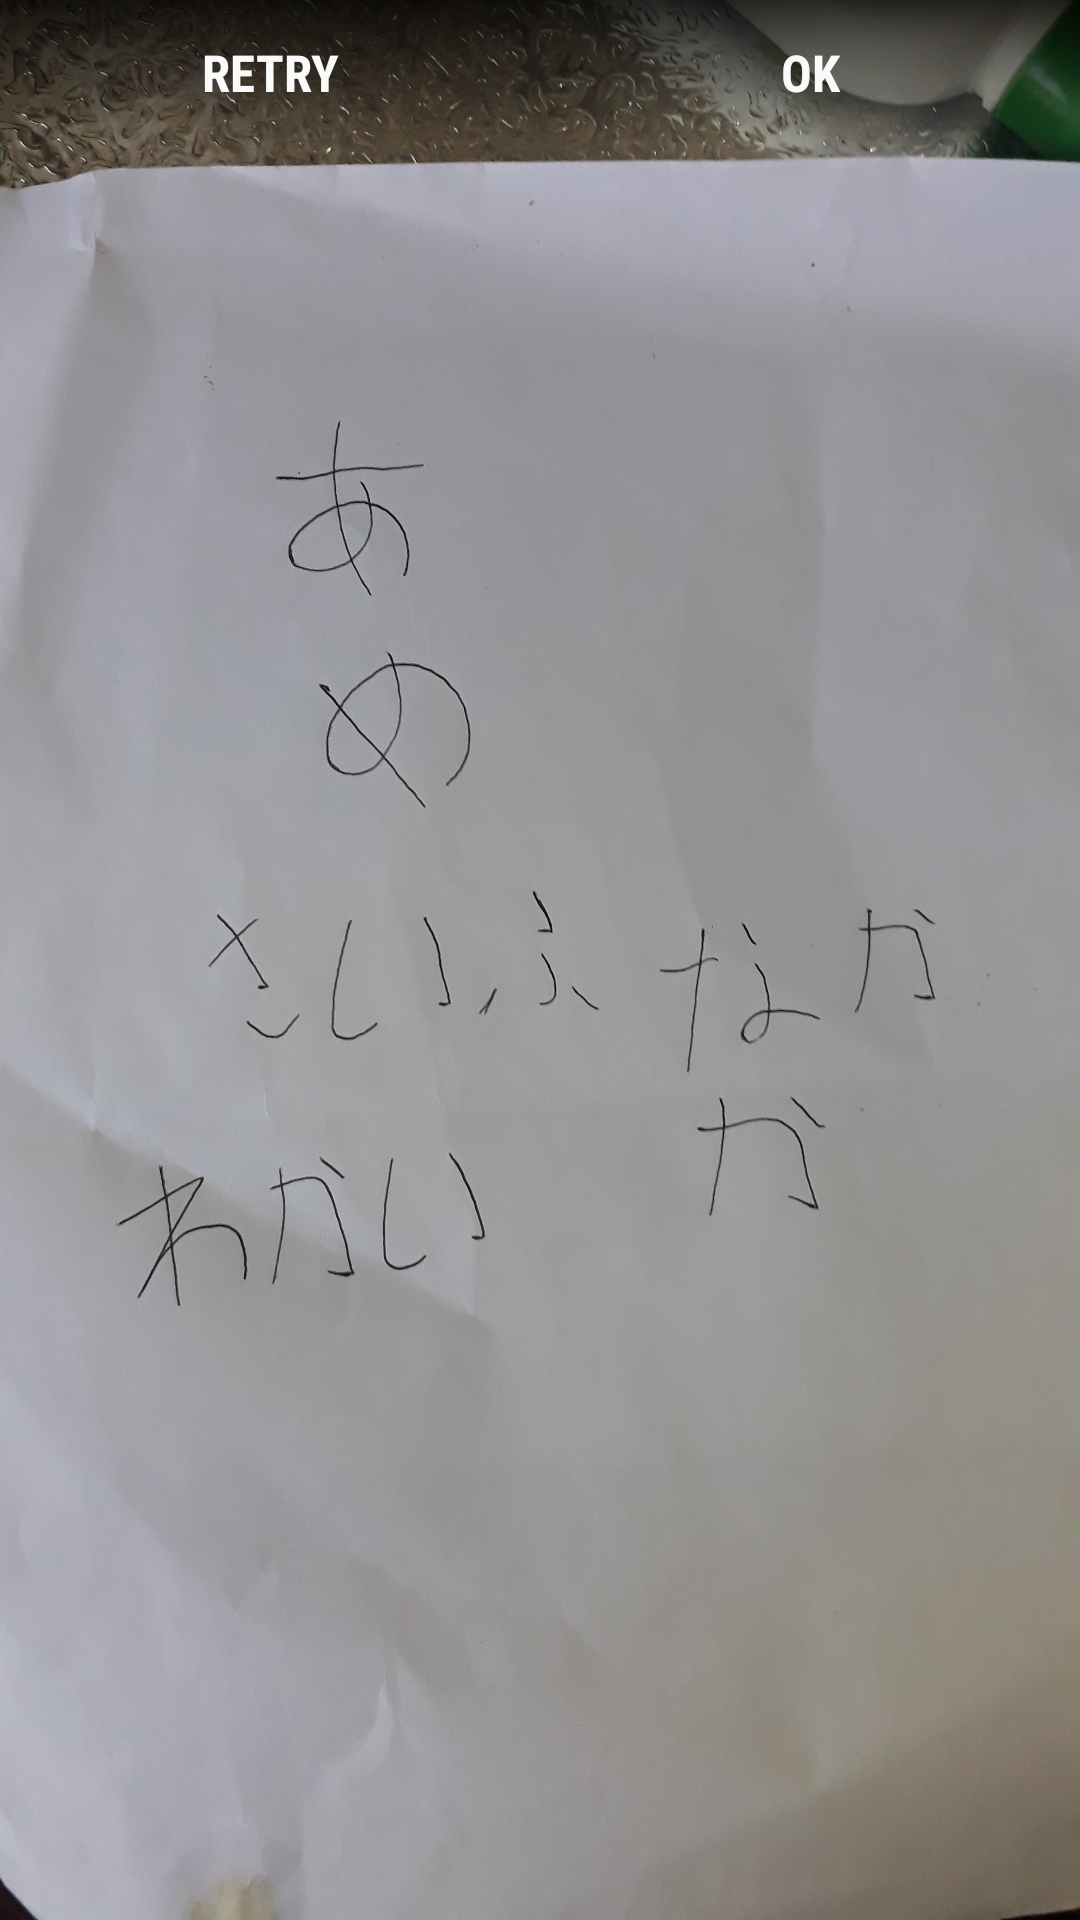 RETRY OK
あ
め
さいふ なか
わかい か